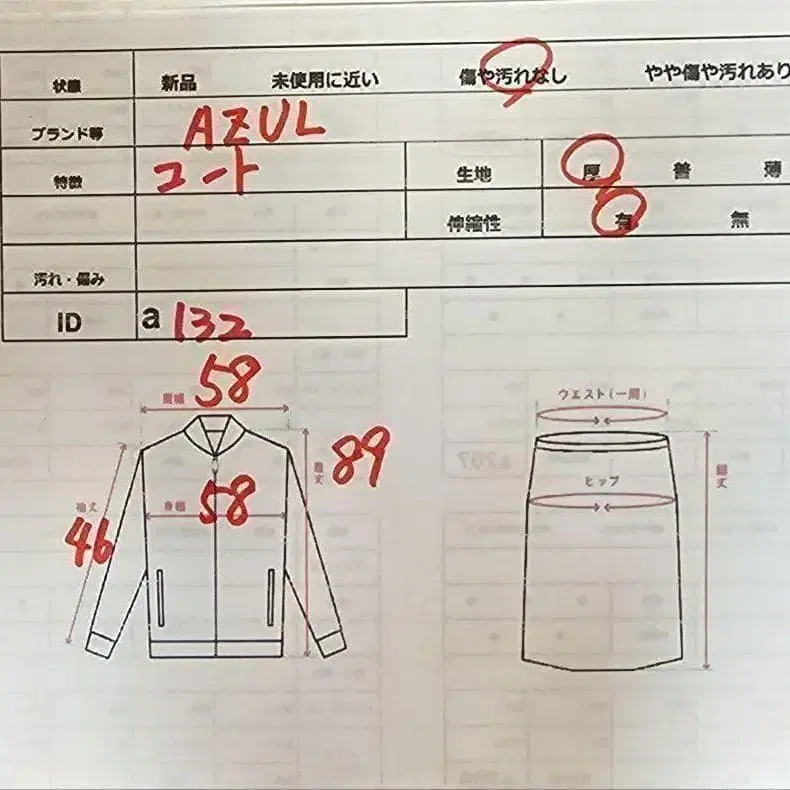 状態 新品 未使用に近い 傷や汚れなし やや傷や汚れあり
ブランド等 AZUL
特徴 コート 生地 厚 善 薄
伸縮性 有 無
汚れ・傷み
ID a 132
肩幅 58
ウエスト(一周)
着丈 89
袖丈 46
身幅 58
ヒップ
総丈